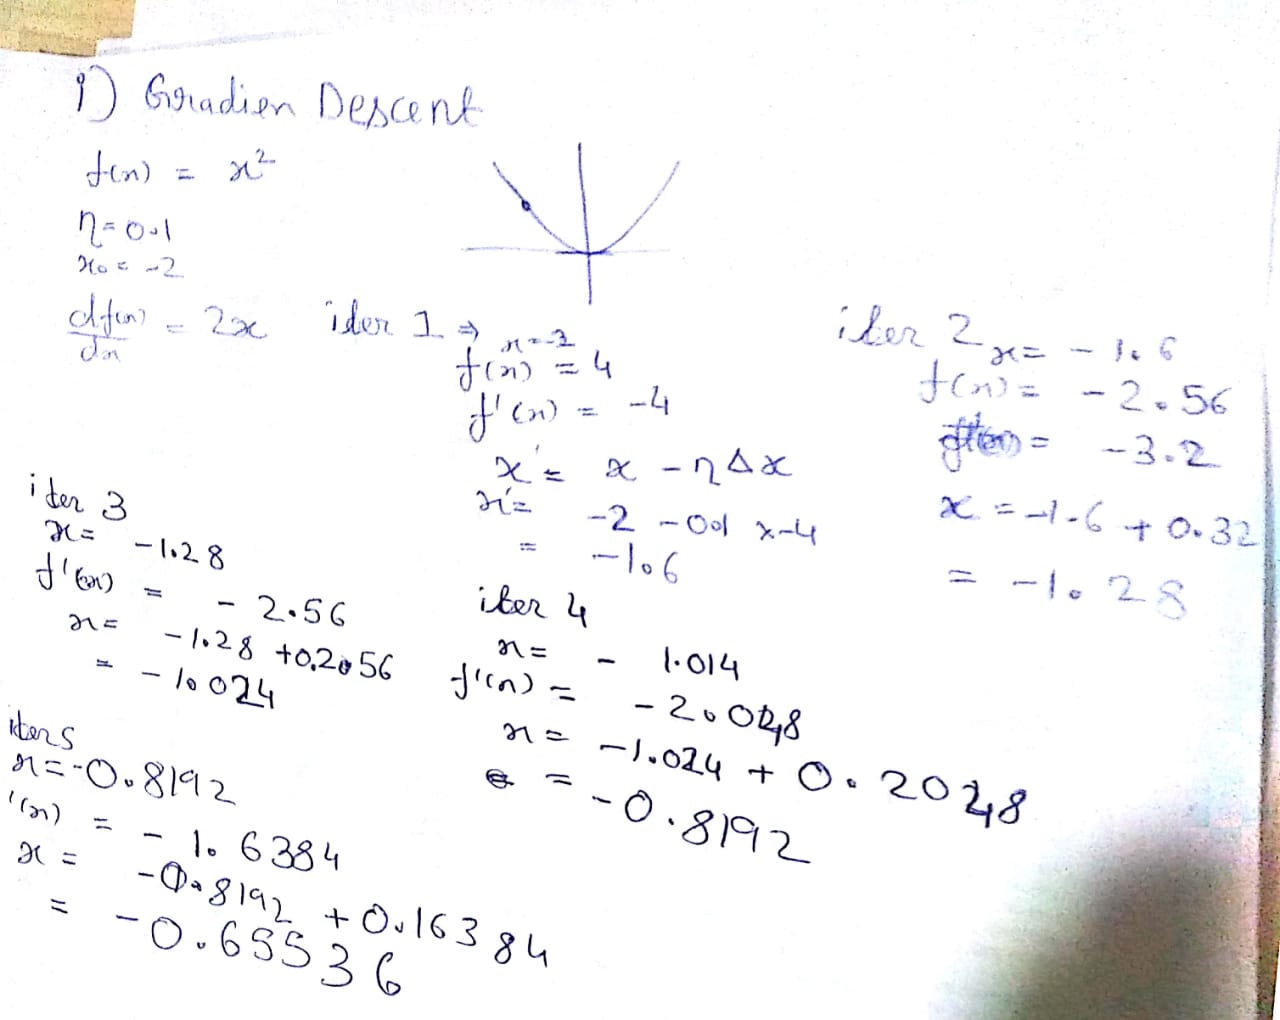 1) Gradien Descent
f(n) = x²
η = 0.1
x₀ = -2
df(n)/dn = 2x
iter 1 ⇒ x = -2
f(n) = 4
f'(n) = -4
x' = x - ηΔx
x' = -2 - 0.1 x -4
= -1.6
iter 2 x = -1.6
f(n) = -2.56
= -3.2
x = -1.6 + 0.32
= -1.28
iter 3
x = -1.28
f'(n) = -2.56
x = -1.28 + 0.256
= -1.024
iter 4
x = - 1.014
f'(n) = -2.048
x = -1.024 + 0.2048
= -0.8192
iter 5
x = -0.8192
'(n) = -1.6384
x = -0.8192 + 0.16384
= -0.65536